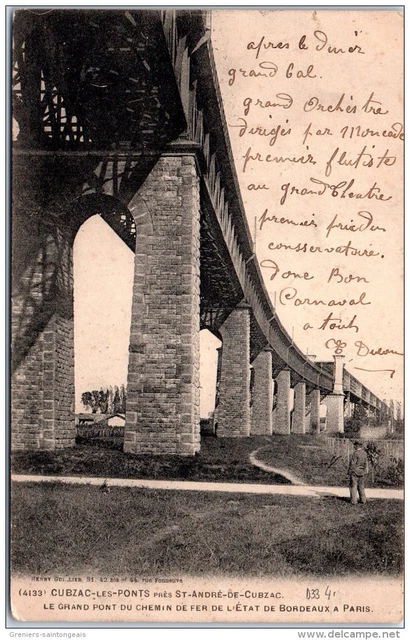 après le dinèr
grand bal.
grand Orchèstre
dirigés par Moncade
premier flutiste
au grand théatre
premier prix de
conservatoire.
donc Bon
Carnaval
a toutt
HENRY GUILLIER, 51, 42 BIS
(4133) CUBZAC-LES-PONTS PRÈS ST-ANDRÉ-DE-CUBZAC.
LE GRAND PONT DU CHEMIN DE FER DE L'ÉTAT DE BORDEAUX A PARIS.
Greniers-saintongeais
www.delcampe.net